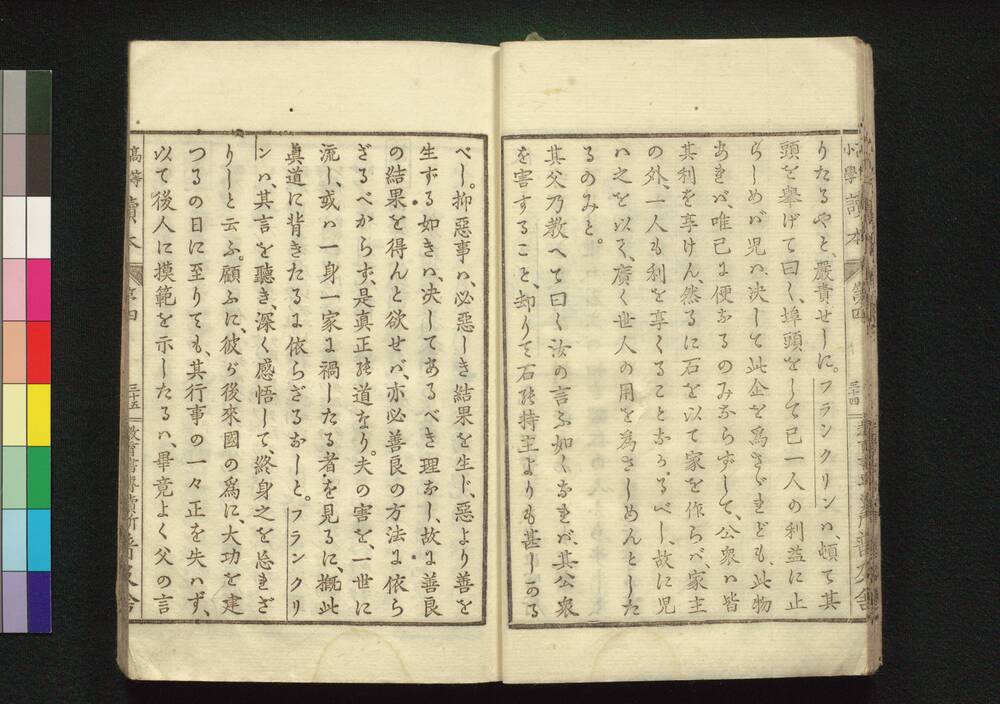 小學讀本
三十四
普及舍
りたるやと、嚴責せしに。フランクリンハ、頓て其
頭を擧げて曰く、埠頭をして已一人の利益に止
らしめバ児ハ决して此企を爲さゞれども、此物
あれバ、唯已に便なるのみならずして、公衆ハ皆
其利を享けん、然るに石を以て家を作らバ、家主
の外、一人も利を享くることなかるべし、故に児
ハ之を以て、廣く世人の用を爲さしめんとした
るのみと。
其父乃教へて曰く汝の言ふ如くなれバ、其公衆
を害すること、却りて石の持主よりも甚しかる
べし。抑惡事ハ、必惡しき結果を生じ、惡より善を
生ずる如きハ、决してあるべき理なし、故に善良
の結果を得んと欲せバ、亦必善良の方法に依ら
ざるべからず、是真正の道なり。夫の害を、一世に
流し、或ハ一身一家に禍したる者を見るに、概此
眞道に背きたるに依らざるなしと。フランクリ
ンハ、其言を聽き、深く感悟して、終身之を忘れざ
りしと云ふ。顧ふに、彼が後來國の爲に、大功を建
つるの日に至りても、其行事の一々正を失ハず、
以て後人に摸範を示したるハ、畢竟よく父の言
高等讀本
第四
三十五
普及舍